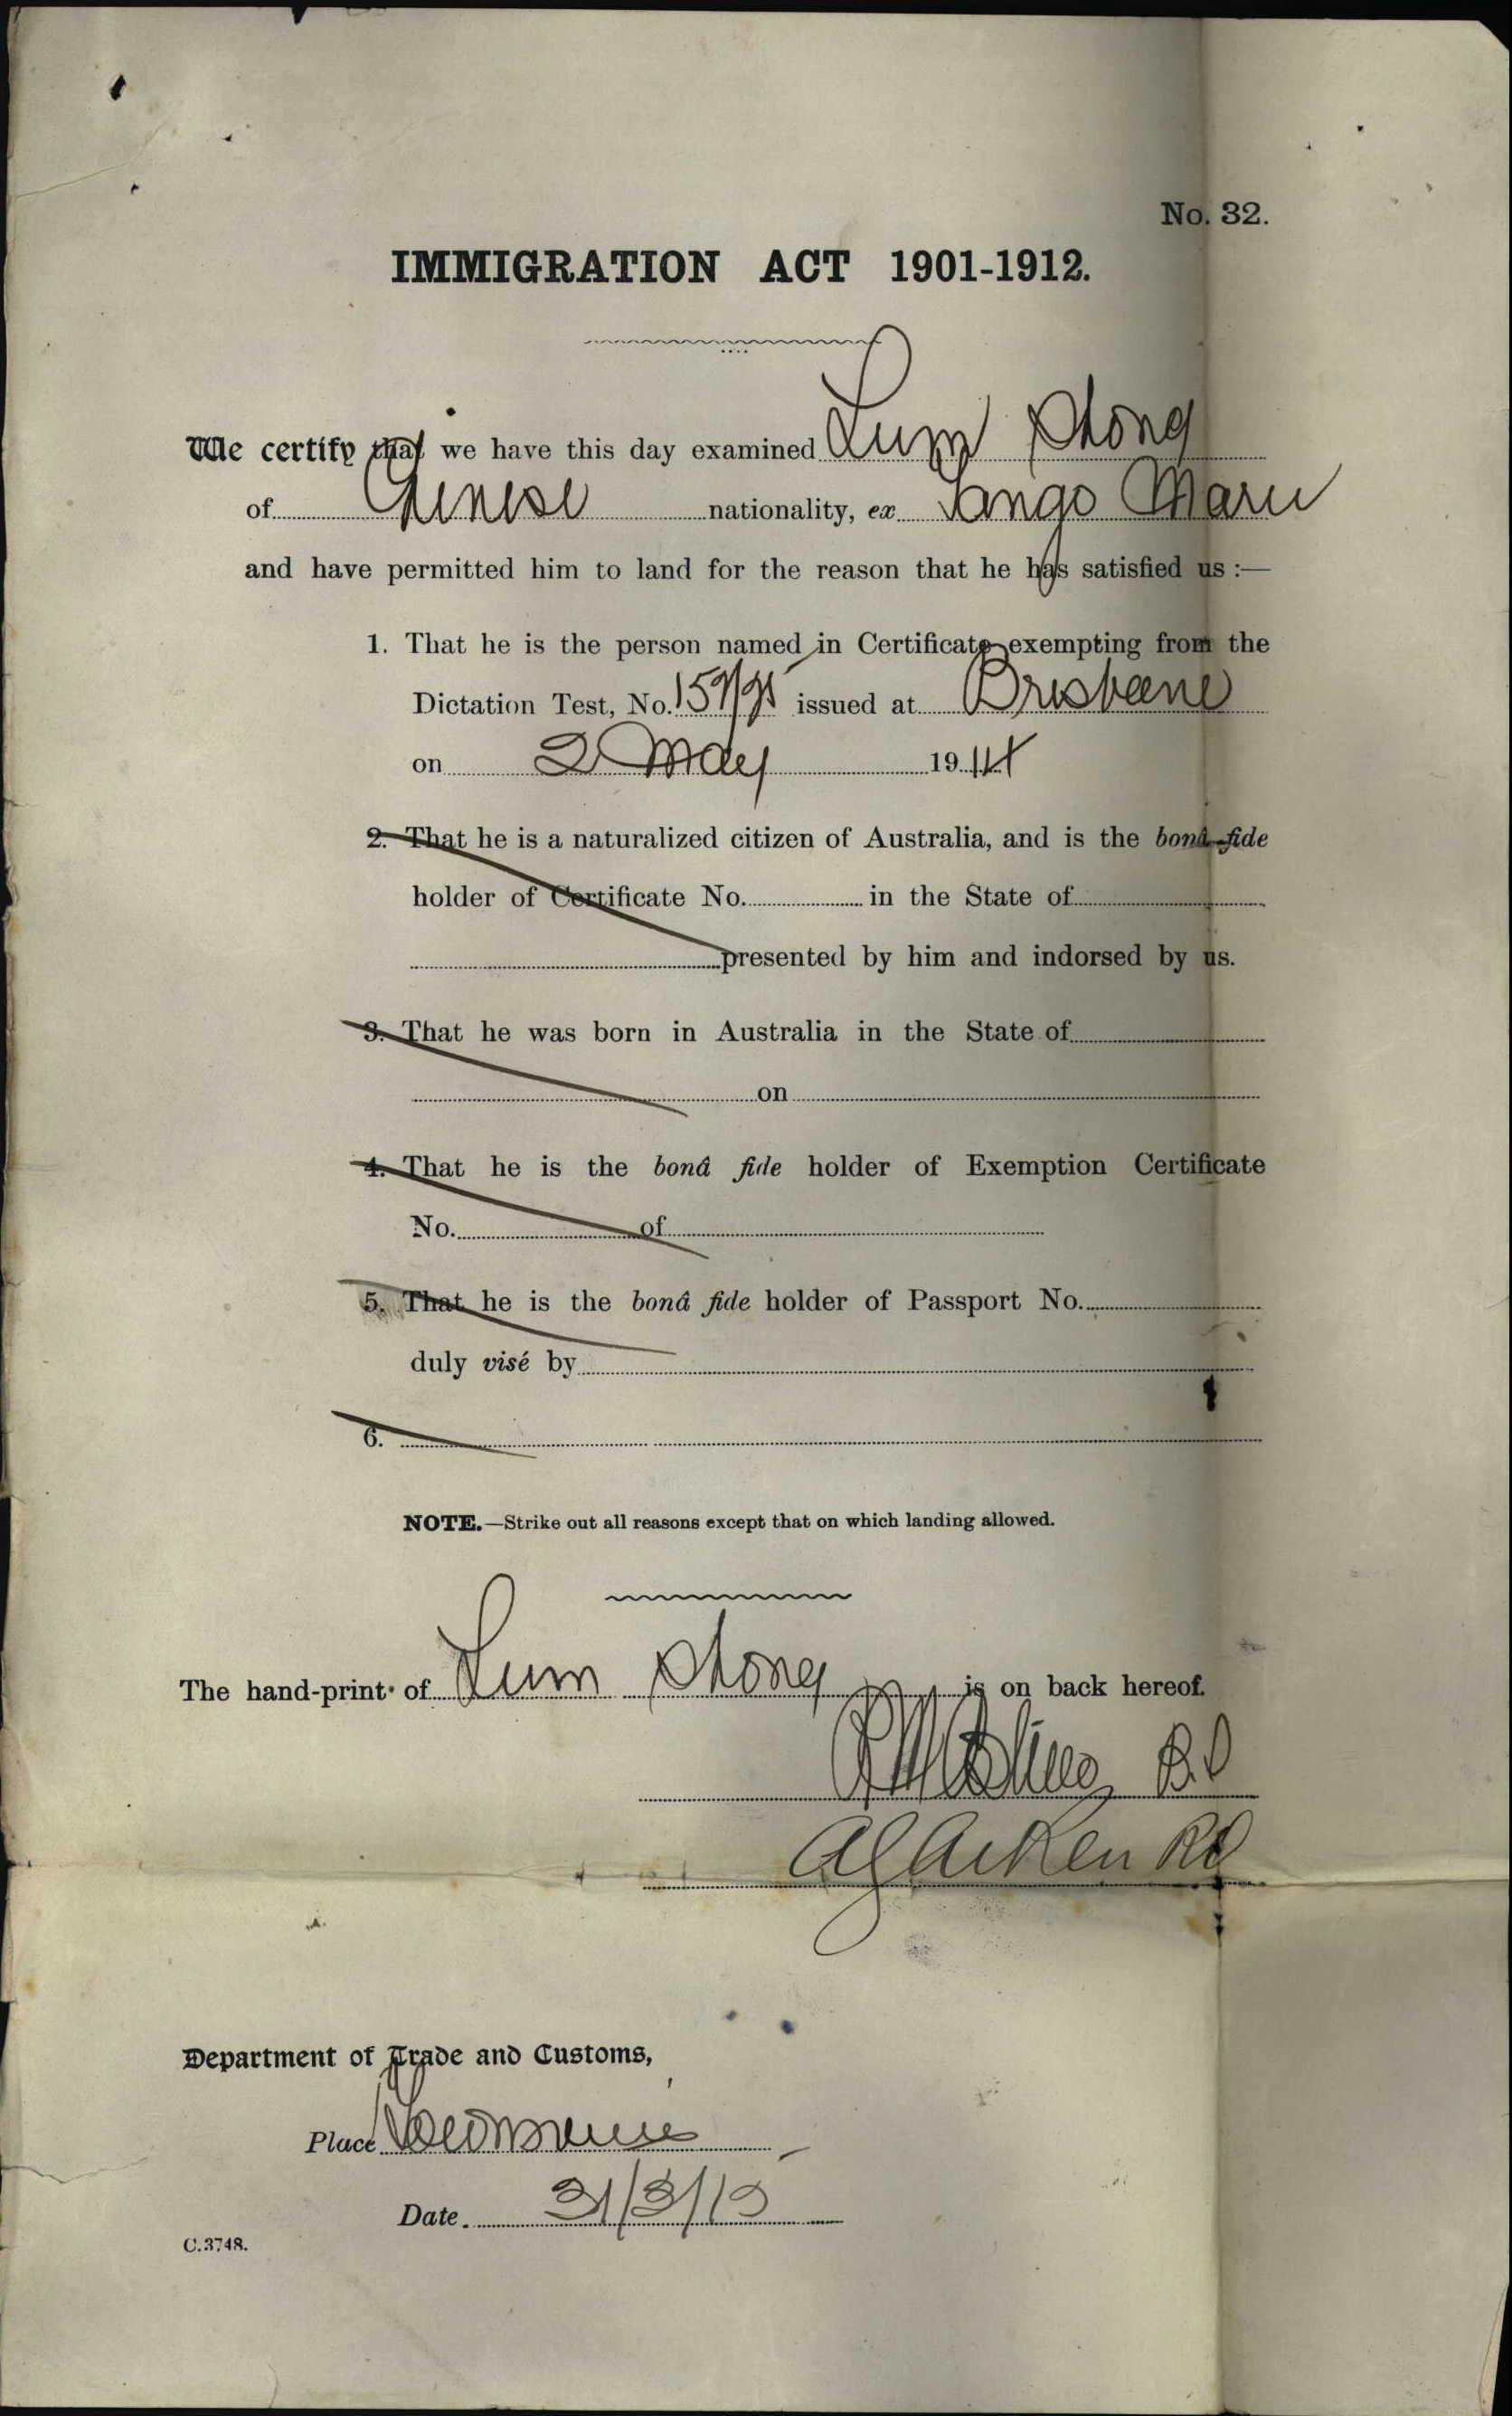 No. 32.
IMMIGRATION ACT 1901-1912.
We certify that we have this day examined Lum Shong
of Chinese nationality, ex Tango Maru
and have permitted him to land for the reason that he has satisfied us :—
1. That he is the person named in Certificate exempting from the
Dictation Test, No. 159/95 issued at Brisbane
on 2 May 1914
2. That he is a naturalized citizen of Australia, and is the bonâ fide
holder of Certificate No. in the State of
presented by him and indorsed by us.
3. That he was born in Australia in the State of
on
4. That he is the bonâ fide holder of Exemption Certificate
No. of
5. That he is the bonâ fide holder of Passport No.
duly visé by
6.
NOTE.—Strike out all reasons except that on which landing allowed.
The hand-print of Lum Shong is on back hereof.
AG Aiken
Department of Trade and Customs,
Place
Date. 31/3/15
C.3748.